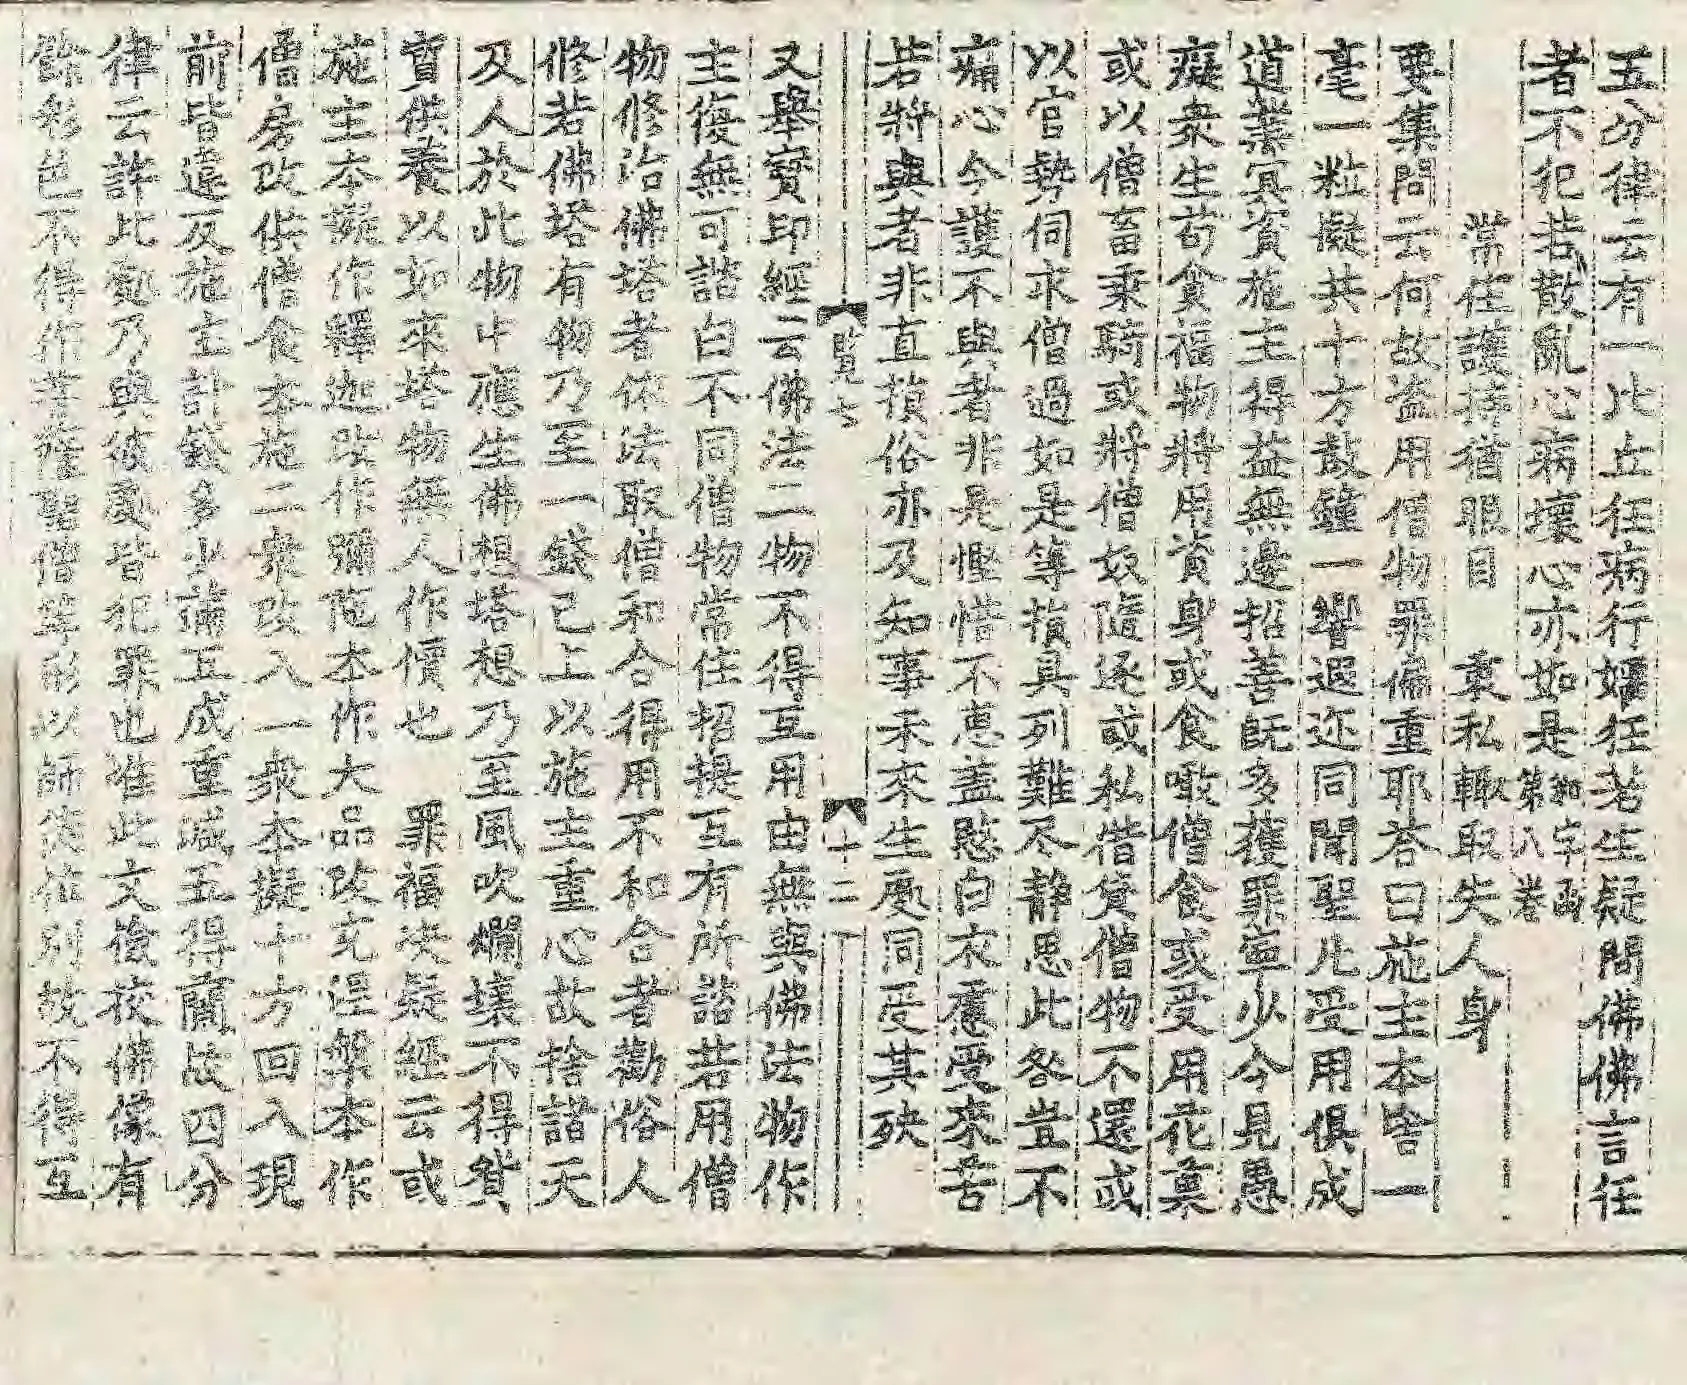 五分律云有一比丘狂病行婬狂若生疑問佛佛言狂
者不犯若散亂心病壞心亦如是第八卷
常住護持猶眼目　裏私輙取失人身
要集問云何故盗用僧物罪偏重耶荅曰施主本皆一
毫一粒擬共十方鼓鍾一響遐迩同聞聖凡受用俱成
道業冥資施主得益無邊招善旣多獲罪寧少今見愚
癡衆生苟貪福物將用資身或食噉僧食或受用花菓
或以僧畜乗騎或將僧奴隨逐或私借貸僧物不還或
以官勢伺求僧過如是等損具列難尽静思此咎豈不
痛心今護不與者非是慳惜不恵盖愍白衣慮受來苦
若將與者非直損俗亦及知事未來生處同受其殃
賢七
十二
又舉寳印經云佛法二物不得互用由無與佛法物作
主復無可諮白不同僧物常住招提互有所諮若用僧
物修治佛塔者依法取僧和合得用不和合者勸俗人
修若佛塔有物乃至一錢已上以施主重心故捨諸天
及人於此物中應生佛想塔想乃至風吹爛壞不得貿
寳供養以如來塔物無人作價也　罪福决疑經云或
施主本擬作釋迦改作彌陁本作大品改充涅槃本作
僧房改供僧食本施二衆改入一衆本擬十方回入現
前皆違反施主計錢多少滿五成重减五得蘭故四分
律云許此處乃與彼處皆犯罪也准此文儉挍佛像有
餘彩色不得作菩薩聖僧等形以師徒位別故不得互